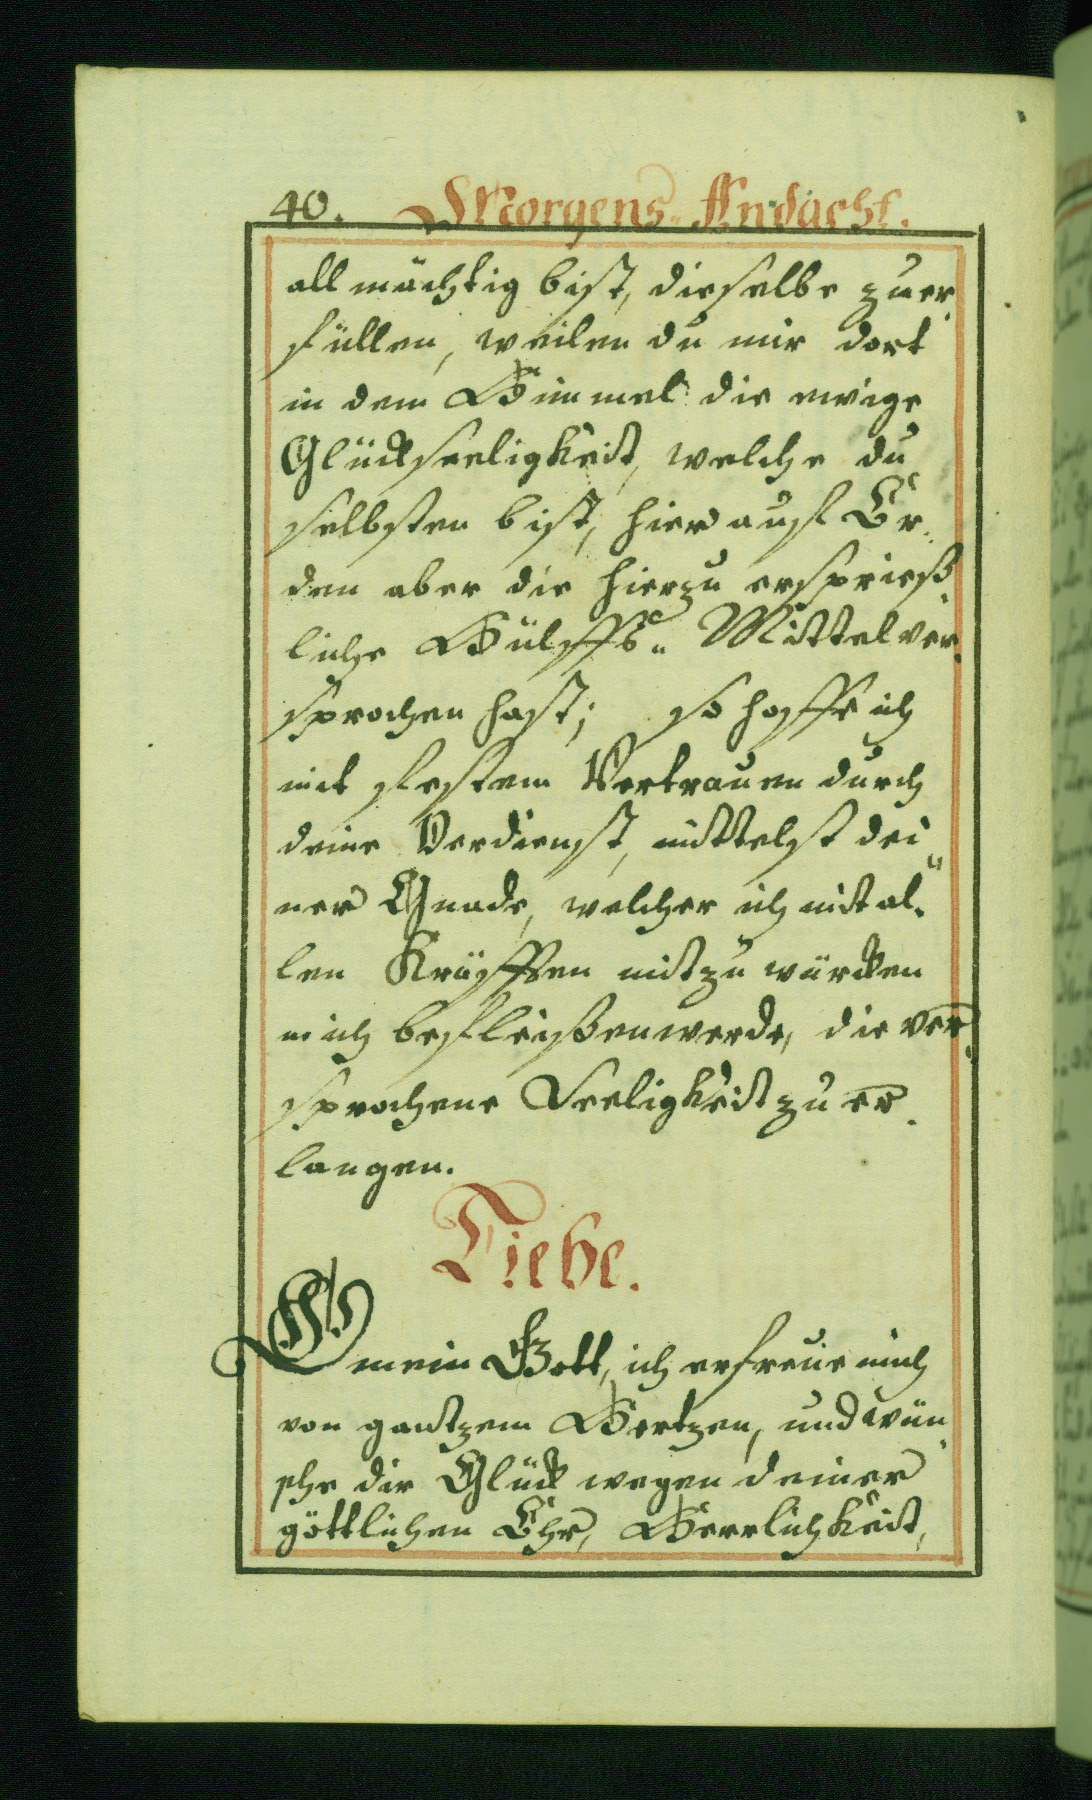 40. Morgens Andacht.
all mächtig bist, dieselbe zu er„
füllen, weilen du mir dort
in dem Himmel die ewige
Glückseeligkeit, welche du
selbsten bist, hier auf Er„
den aber die hierzu ersprieß„
liche Hülffs„ Mittel ver„
sprochen hast; so hoffe ich
mit festem Vertrauen durch
deine Verdienst, mittelst dei„
ner Gnade, welcher ich mit al„
len Kräfften mitzu würcken
mich befleißen werde, die ver„
sprochene Seeligkeit zu er„
langen.
Liebe.
O mein Gott, ich erfreue mich
von gantzem Hertzen, und wün„
sche dir Glück wegen deiner
göttlichen Ehr, Herrlichkeit,